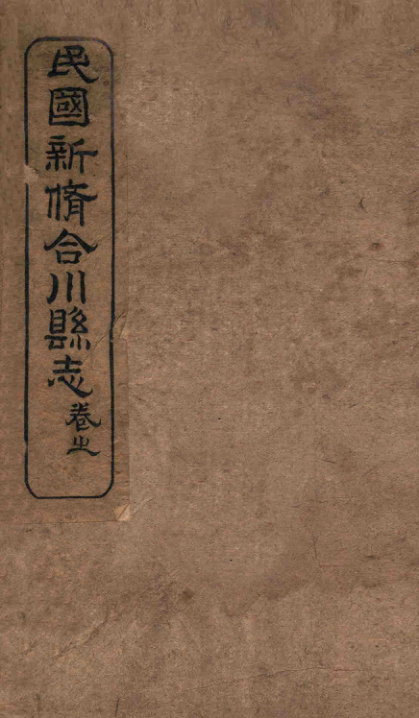 民國新脩合川縣志卷之